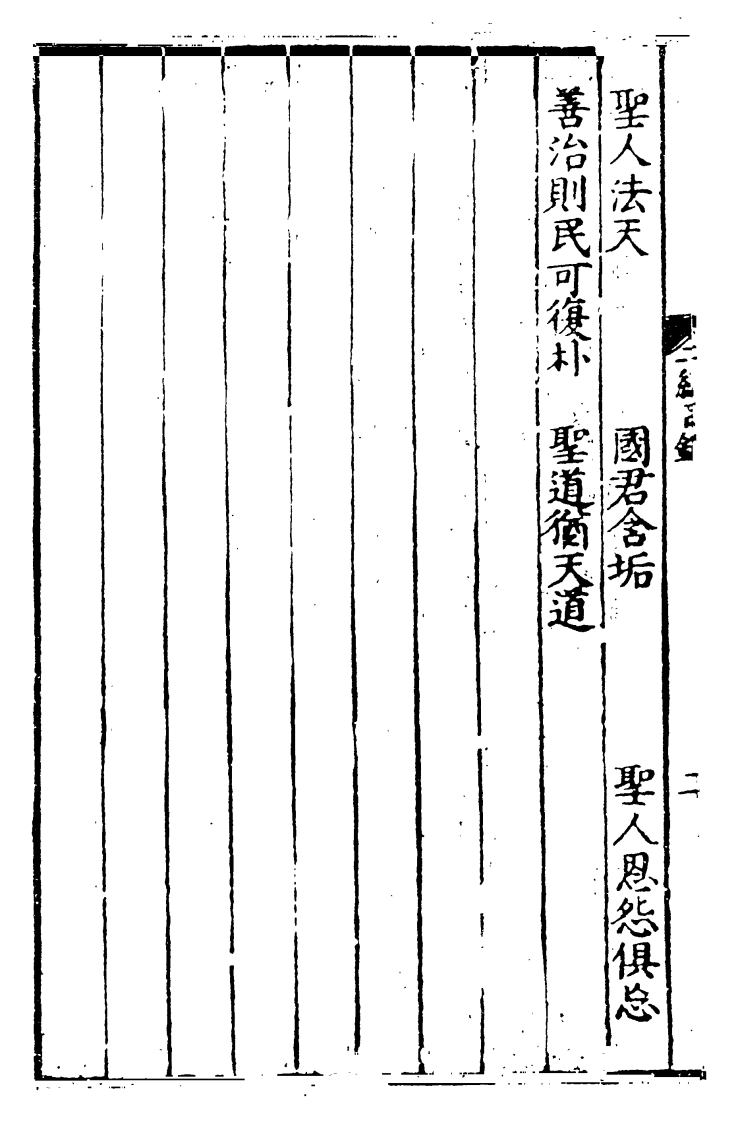 聖人法天　國君含垢　聖人恩怨俱忘
善治則民可復朴　聖道猶天道
二